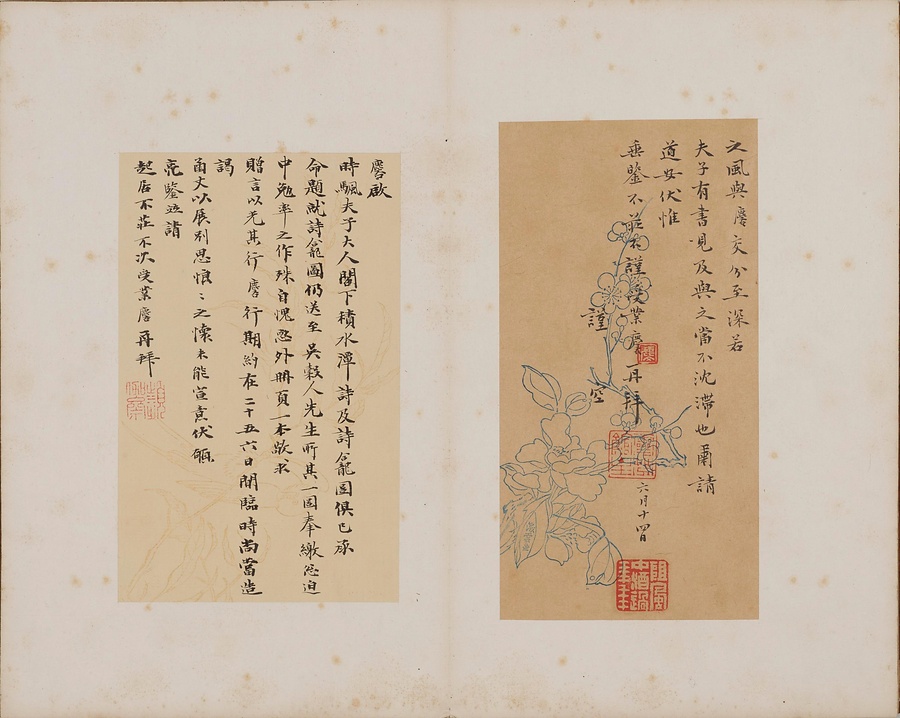 之風與麐交分至深若
夫子有書見及與之當不沈滯也肅請
道安伏惟
垂鑒不莊不謹受業麐再拜
謹空
六月十四日
麐啟
時颿夫子大人閣下積水潭詩及詩龕圖俱已承
命題就詩龕圖仍送至吳穀人先生所其一圖奉繳怱迫
中勉率之作殊自愧恧外冊頁一本敬求
贈言以光其行麐行期約在二十五六日間臨時尚當造
謁
函丈以展別思悢〻之懷未能宣意伏惟
亮鑒並請
起居不莊不次受業麐再拜